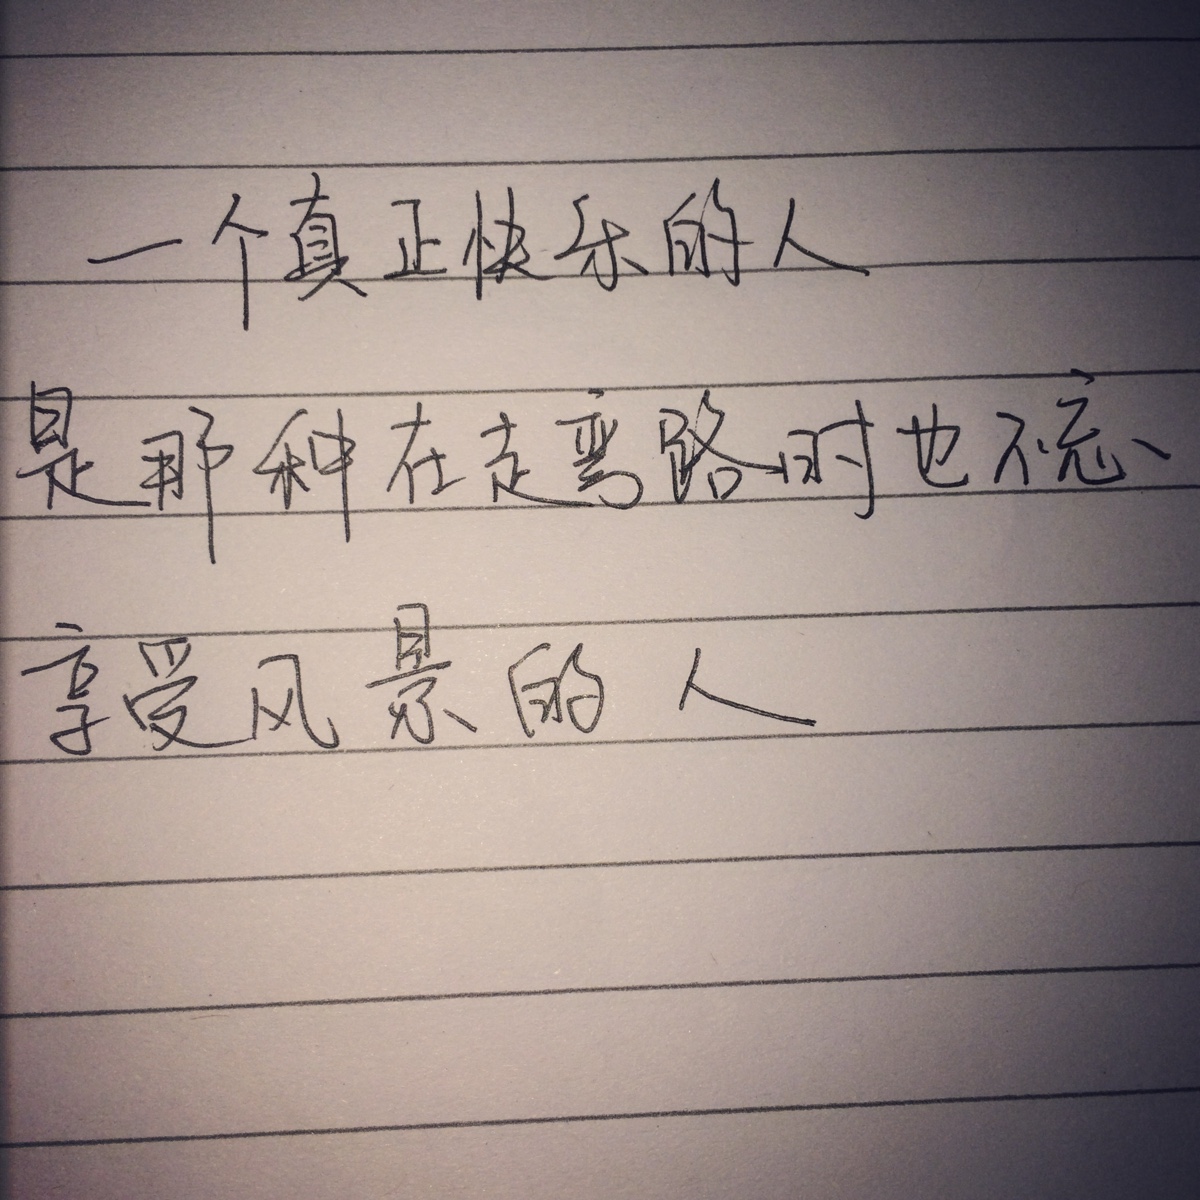 一个真正快乐的人
是那种在走弯路时也不忘
享受风景的人